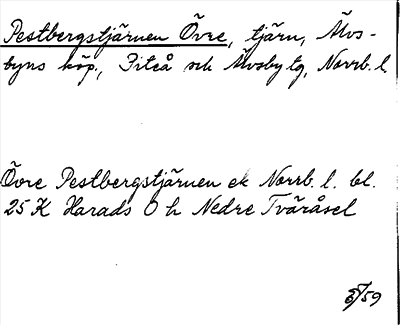 Pestbergstjärnen Övre, tjärn, Älvs-
byns köp., Piteå och Älvsby tg, Norrb. l.
Övre Pestbergstjärnen ek Norrb. l. bl.
25 K Harads O h Nedre Tväråsel
59